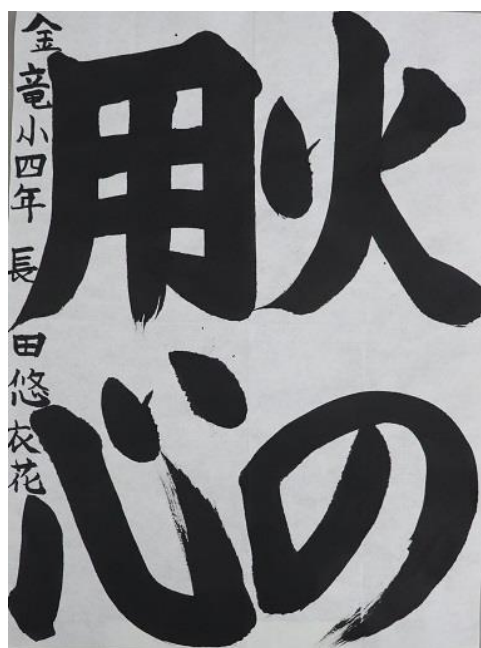 火の
用心
金竜小四年 長田悠衣花